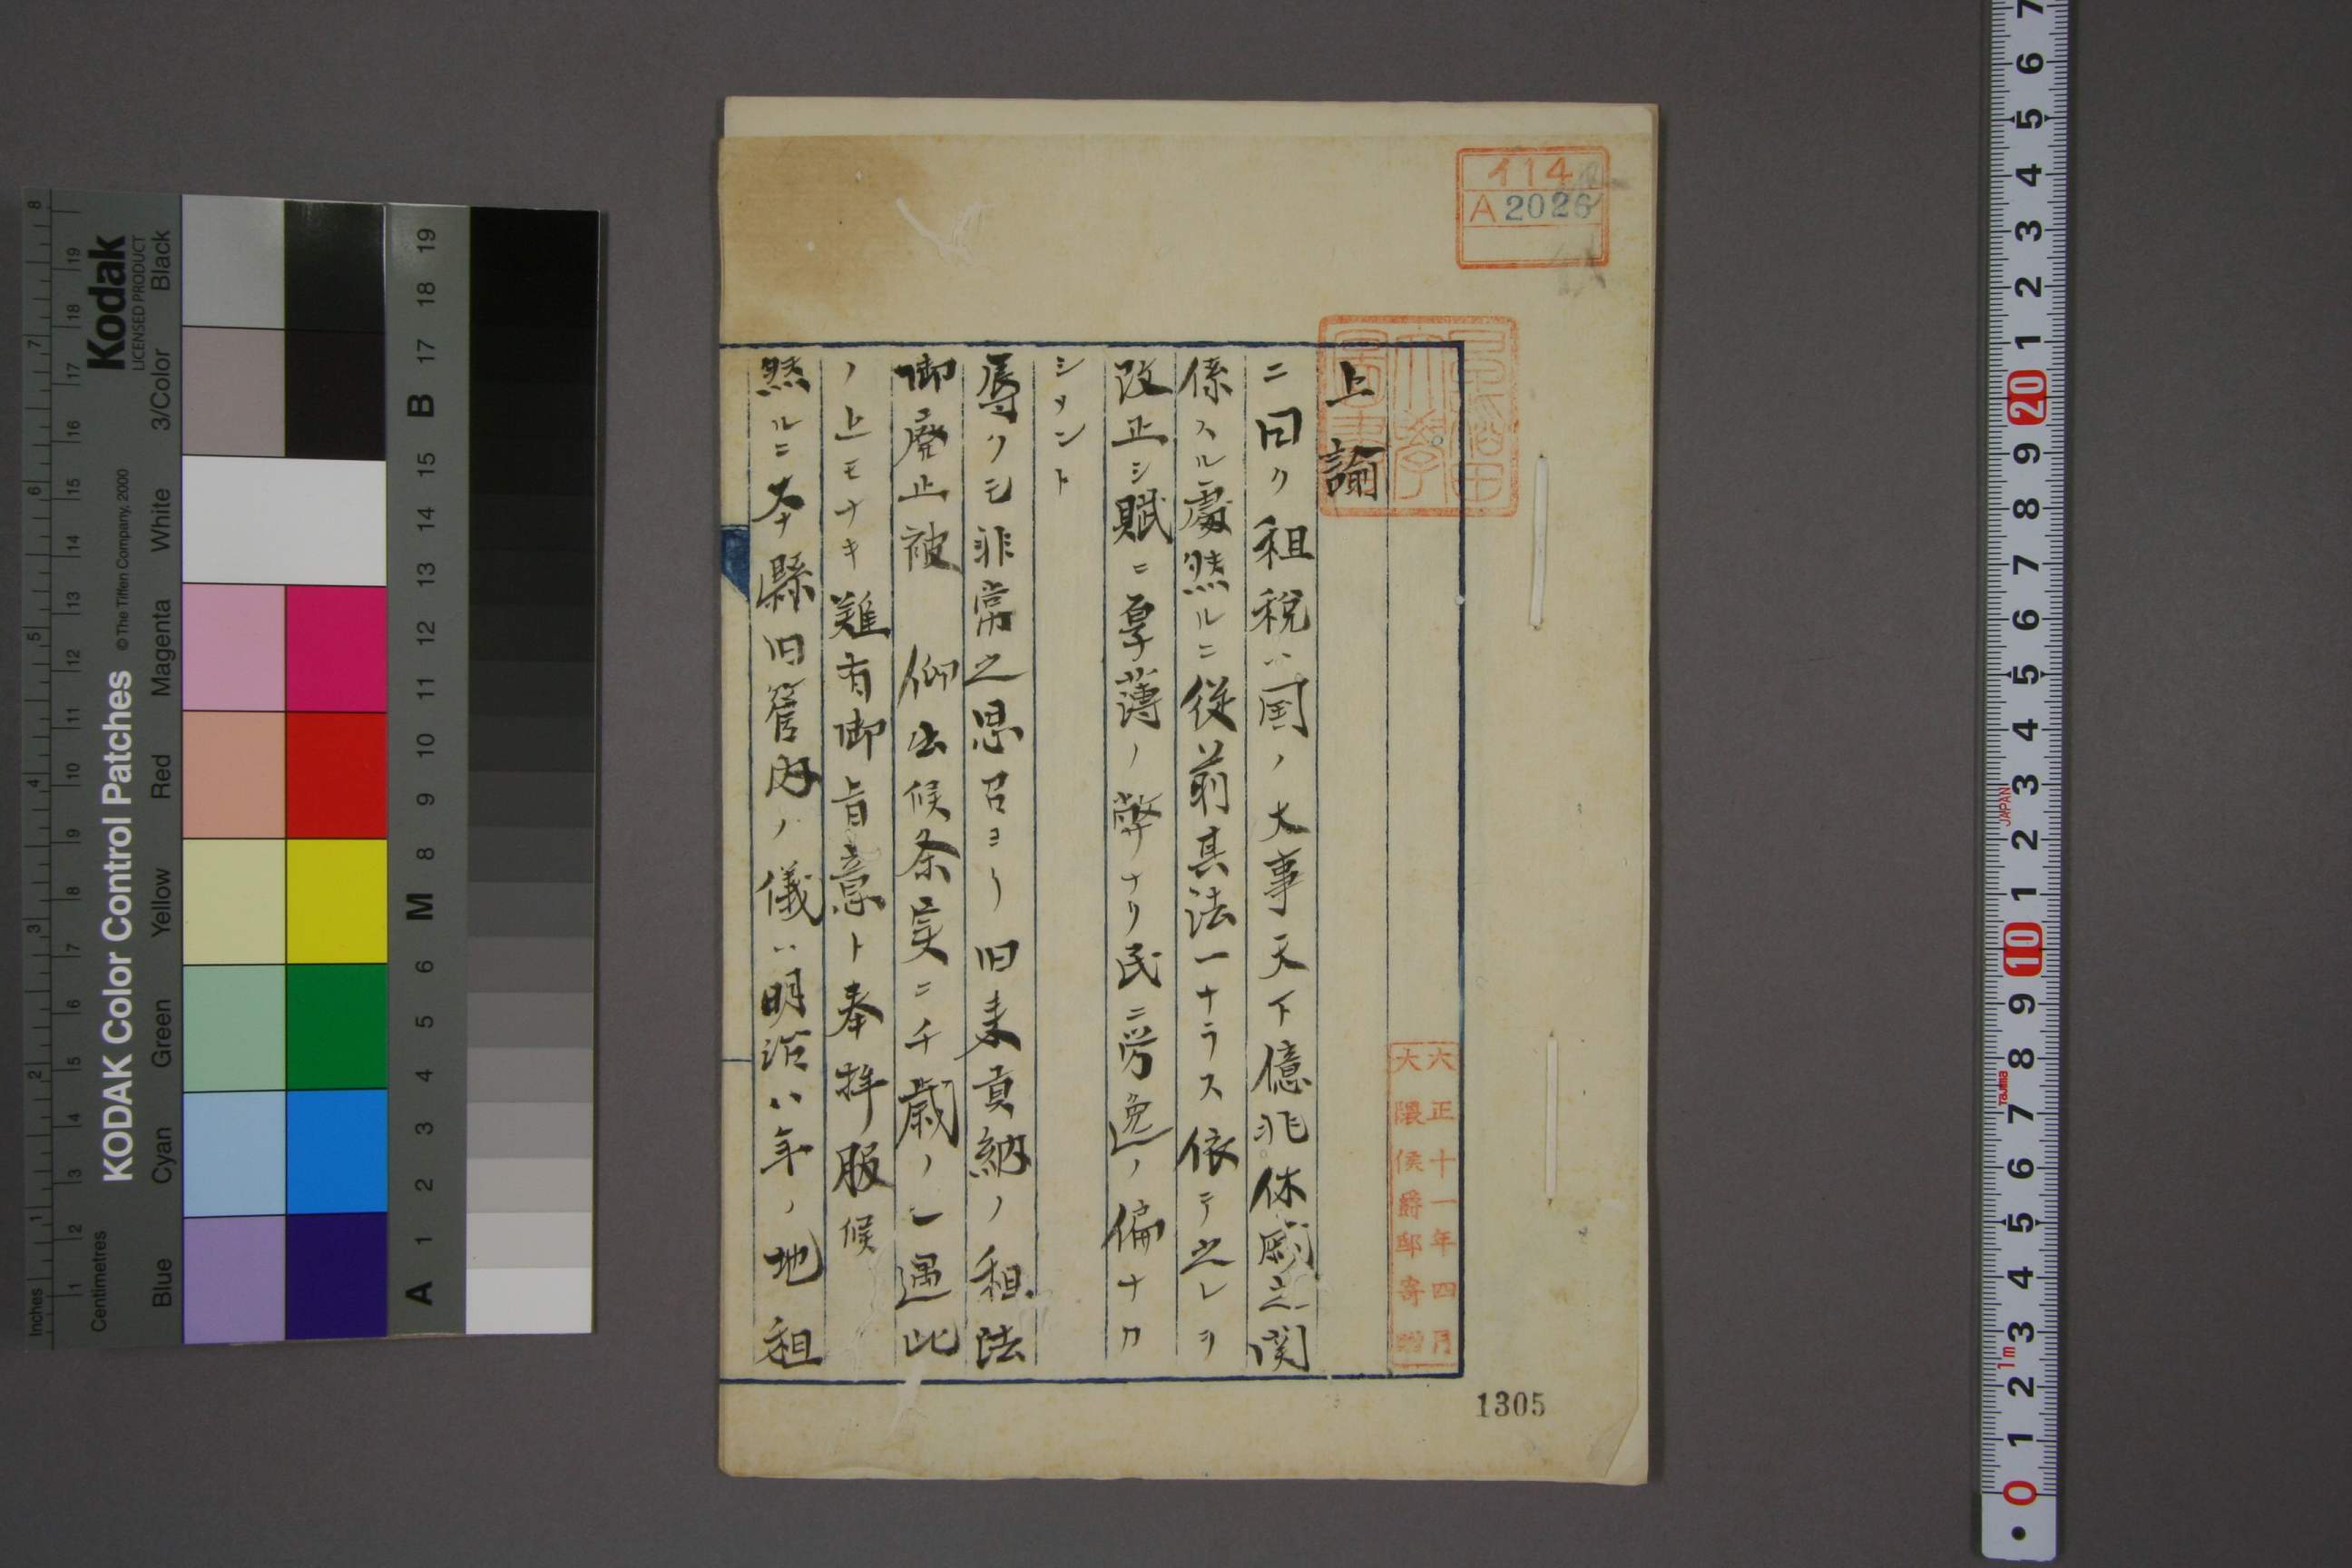 イ14
A2026
早稲田大學圖書
大正十一年四月
大隈侯爵邸寄贈
上諭
ニ曰ク租税ハ国ノ大事天下億兆休戚之関
係スル處然ルニ従前其法一ナラス依テ之レヲ
改正シ賦ニ厚薄ノ弊ナリ民ニ労逸ノ偏ナカ
シメント
辱クモ非常之思召ヨリ旧来貢納ノ租法
御廃止被 仰出候条実ニ千歳ノ一遇此
ノ上モナキ難有御旨意ト奉拝服候
然ルニ本縣旧管内ノ儀ハ明治八年ノ地租
1305
KODAK Color Control Patches
© The Tiffen Company, 2000
Kodak
LICENSED PRODUCT
Inches
Centimetres
Blue Cyan Green Yellow Red Magenta White 3/Color Black
A 1 2 3 4 5 6 M 8 9 10 11 12 13 14 15 B 17 18 19
JAPAN
Tajima
1m